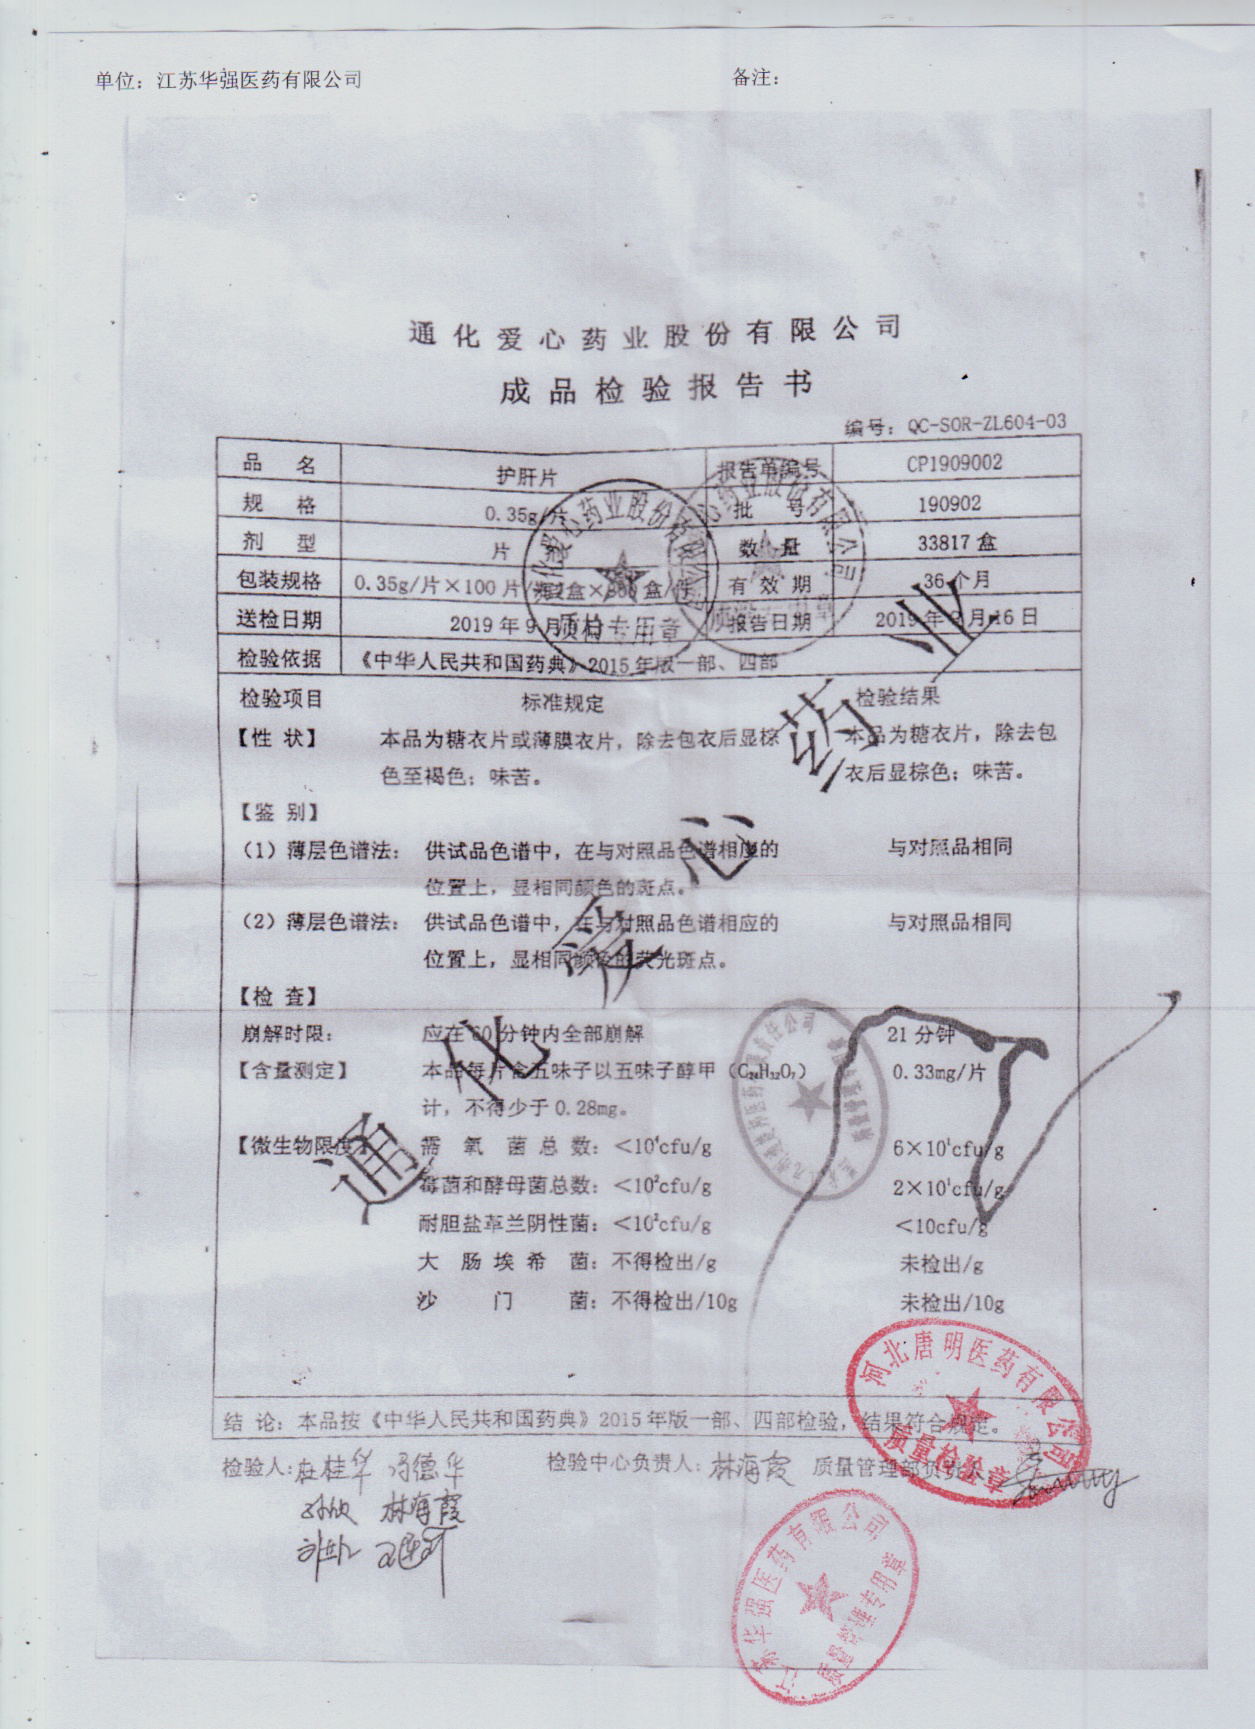 单位：江苏华强医药有限公司 备注：
通化爱心药业股份有限公司
成品检验报告书
编号：QC-SOR-ZL604-03
品 名 护肝片 报告单编号 CP1909002
规 格 0.35g/片 批 号 190902
剂 型 片 数 量 33817 盒
包装规格 0.35g/片×100 片/ 盒× 盒/件 有 效 期 36 个月
送检日期 2019 年 9 月 报告日期 2019 年 9 月 16 日
检验依据 《中华人民共和国药典》2015 年版一部、四部
检验项目 标准规定 检验结果
【性 状】 本品为糖衣片或薄膜衣片，除去包衣后显棕 本品为糖衣片，除去包
色至褐色；味苦。 衣后显棕色；味苦。
【鉴 别】
（1）薄层色谱法： 供试品色谱中，在与对照品色谱相应的 与对照品相同
位置上，显相同颜色的斑点。
（2）薄层色谱法： 供试品色谱中，在与对照品色谱相应的 与对照品相同
位置上，显相同颜色的荧光斑点。
【检 查】
崩解时限： 应在 60 分钟内全部崩解 21 分钟
【含量测定】 本品每片含五味子以五味子醇甲（C₂₄H₃₂O₇） 0.33mg/片
计，不得少于 0.28mg。
【微生物限度】 需 氧 菌 总 数：＜10⁴cfu/g 6×10¹cfu/g
霉菌和酵母菌总数：＜10²cfu/g 2×10¹cfu/g
耐胆盐革兰阴性菌：＜10²cfu/g ＜10cfu/g
大 肠 埃 希 菌：不得检出/g 未检出/g
沙 门 菌：不得检出/10g 未检出/10g
结 论：本品按《中华人民共和国药典》2015 年版一部、四部检验，结果符合规定。
检验人： 桂华 冯德华 检验中心负责人：林海霞 质量管理部负责人
林海霞
通化爱心药业
质检专用章
河北唐明医药有限公司
质量检验章
江苏华强医药有限公司
质量管理专用章